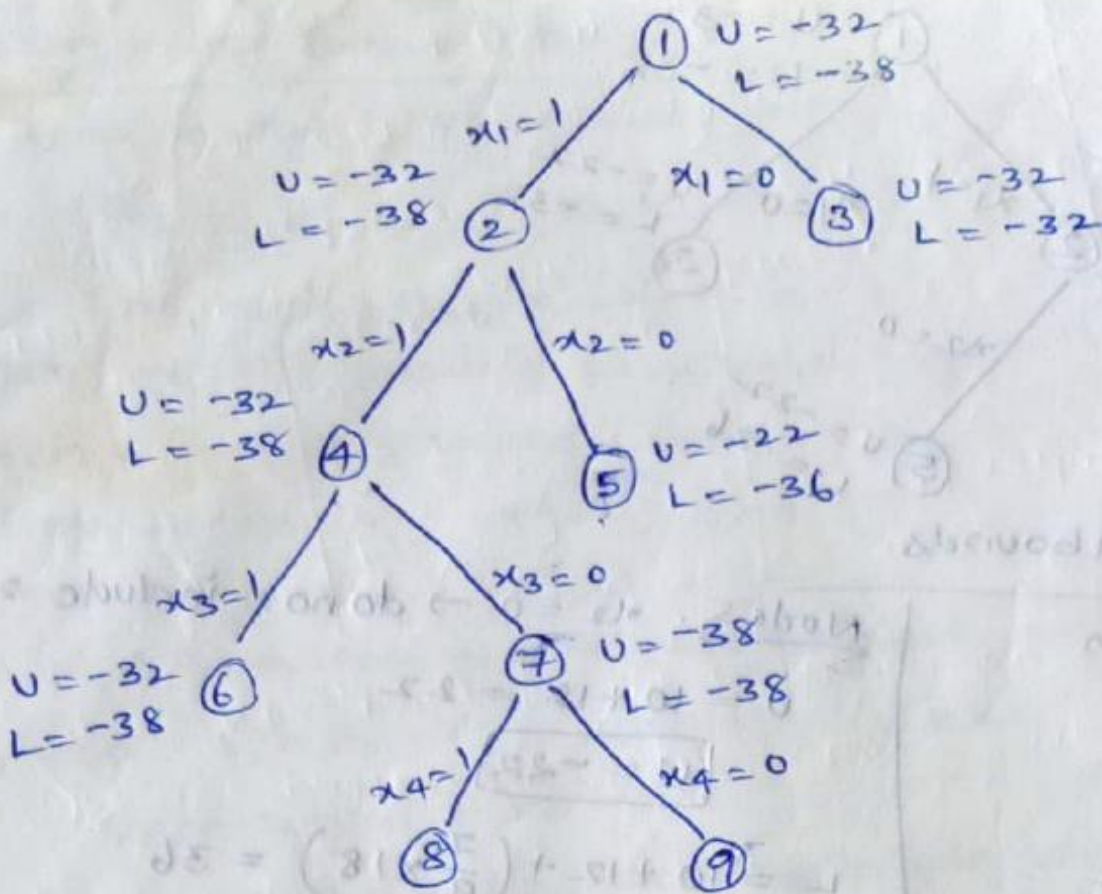 1 U = -32
L = -38
x1=1 x1=0
U = -32
L = -38 2
3 U = -32
L = -32
x2=1 x2=0
U = -32
L = -38 4
5 U = -22
L = -36
x3=1 x3=0
U = -32
L = -38 6
7 U = -38
L = -38
x4=1 x4=0
8 9